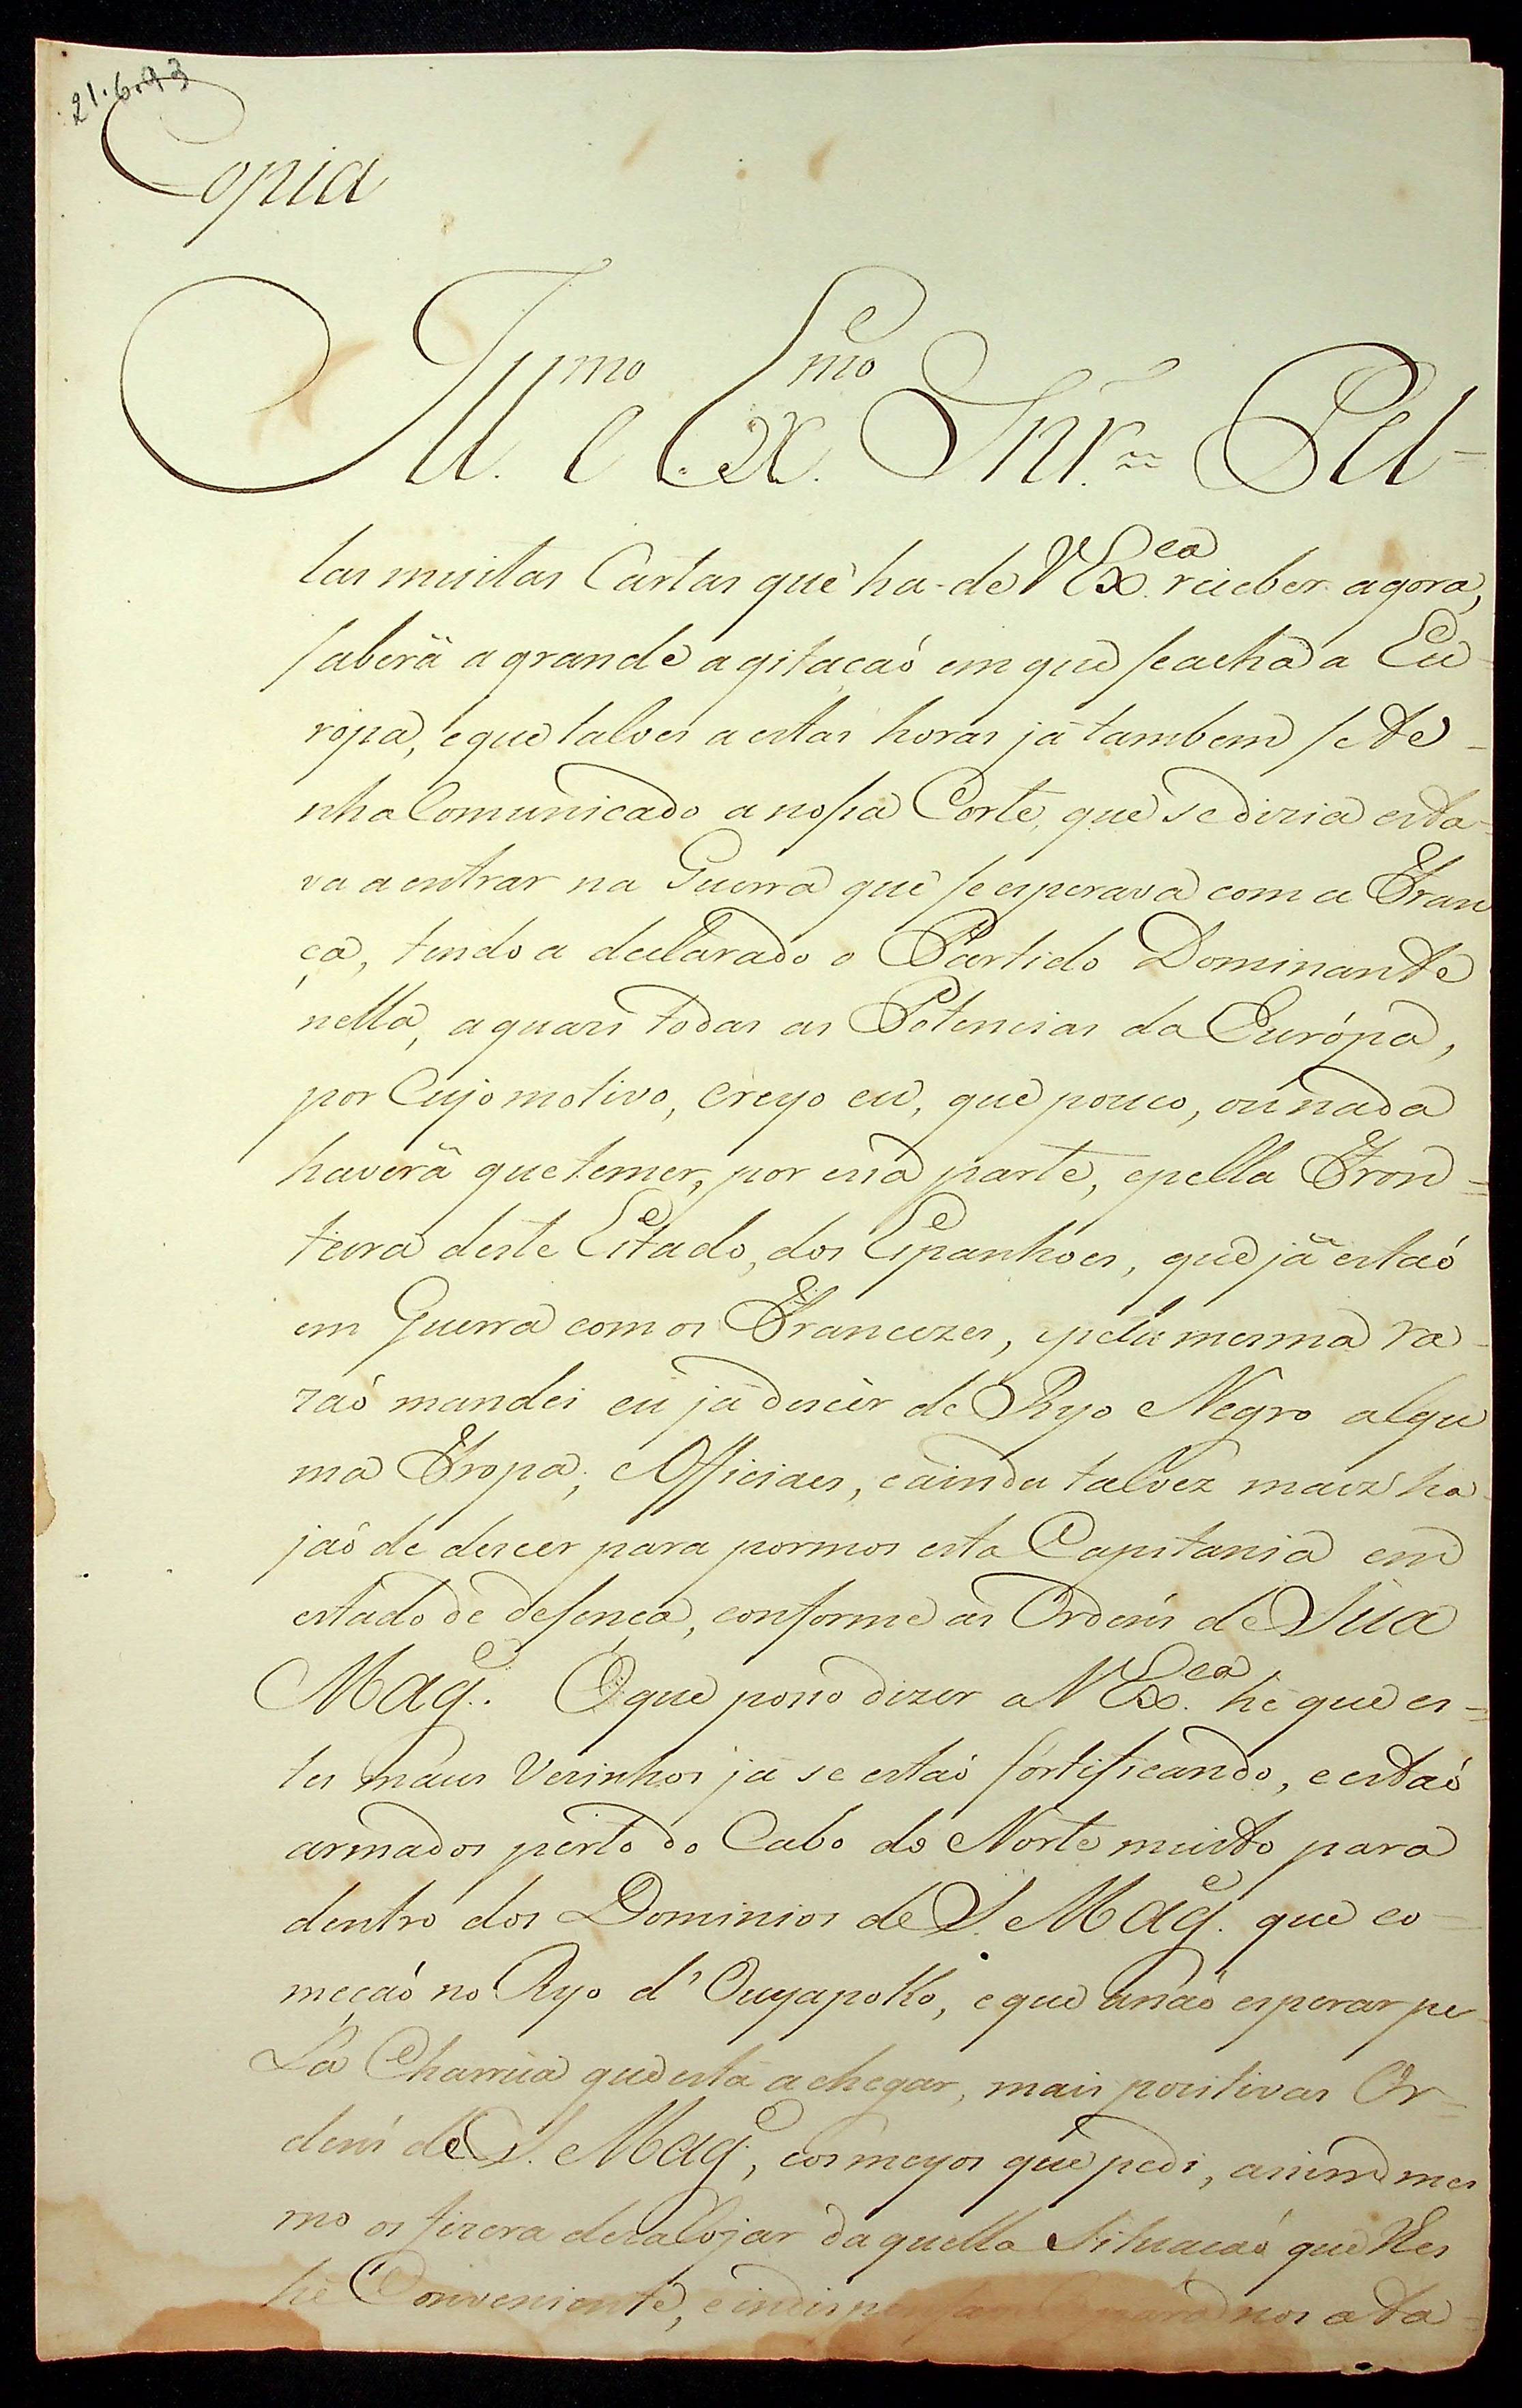 21.6.93
Copia
Ill.mo e Ex.mo Snr. Pel-
las muitas Cartas que ha-de VEx.ca receber agora,
saberá a grande agitacaó em que se acha a Eu-
ropa, e que talves a estas horas já tambem se te-
nha Comunicado a nossa Corte, que se dizia esta-
va a entrar na Guerra que se esperava com a Fran
ça, tendo a declarado o Partido Dominante
nella, a quazi todas as Potencias da Európa,
por Cujo motivo, creyo eu, que pouco, ou nada
haverá que temer, por essa parte, e pella Fron=
teira deste Estado, dos Espanhoes, que já estaó
em Guerra com os Francezes, e pela mesma ra-
zaó mandei eu já descer de Ryo Negro algu
ma Tropa, e Officiaes, e ainda talvez maiz ha-
jaó de descer para pormos esta Capitania em
estado de defença, conforme as Ordens de Sua
Mag.e O que posso dizer a VEx.ca hé que es=
tes máus Vesinhos já se estaó fortificando, e estaó
armados perto do Cabo do Norte muito para
dentro dos Dominios de S. Mag.e que co-
meçaó no Ryo d'Ouyapoko, e que a naó esperar pe-
La Charrua que está a chegar, mais positivas Or=
dens de S. Mag.e, e os meyos que pedi, assim mes
mo os fizera dezalojar daquella Situacaó que lhes
hé Conveniente, e para nos ata-